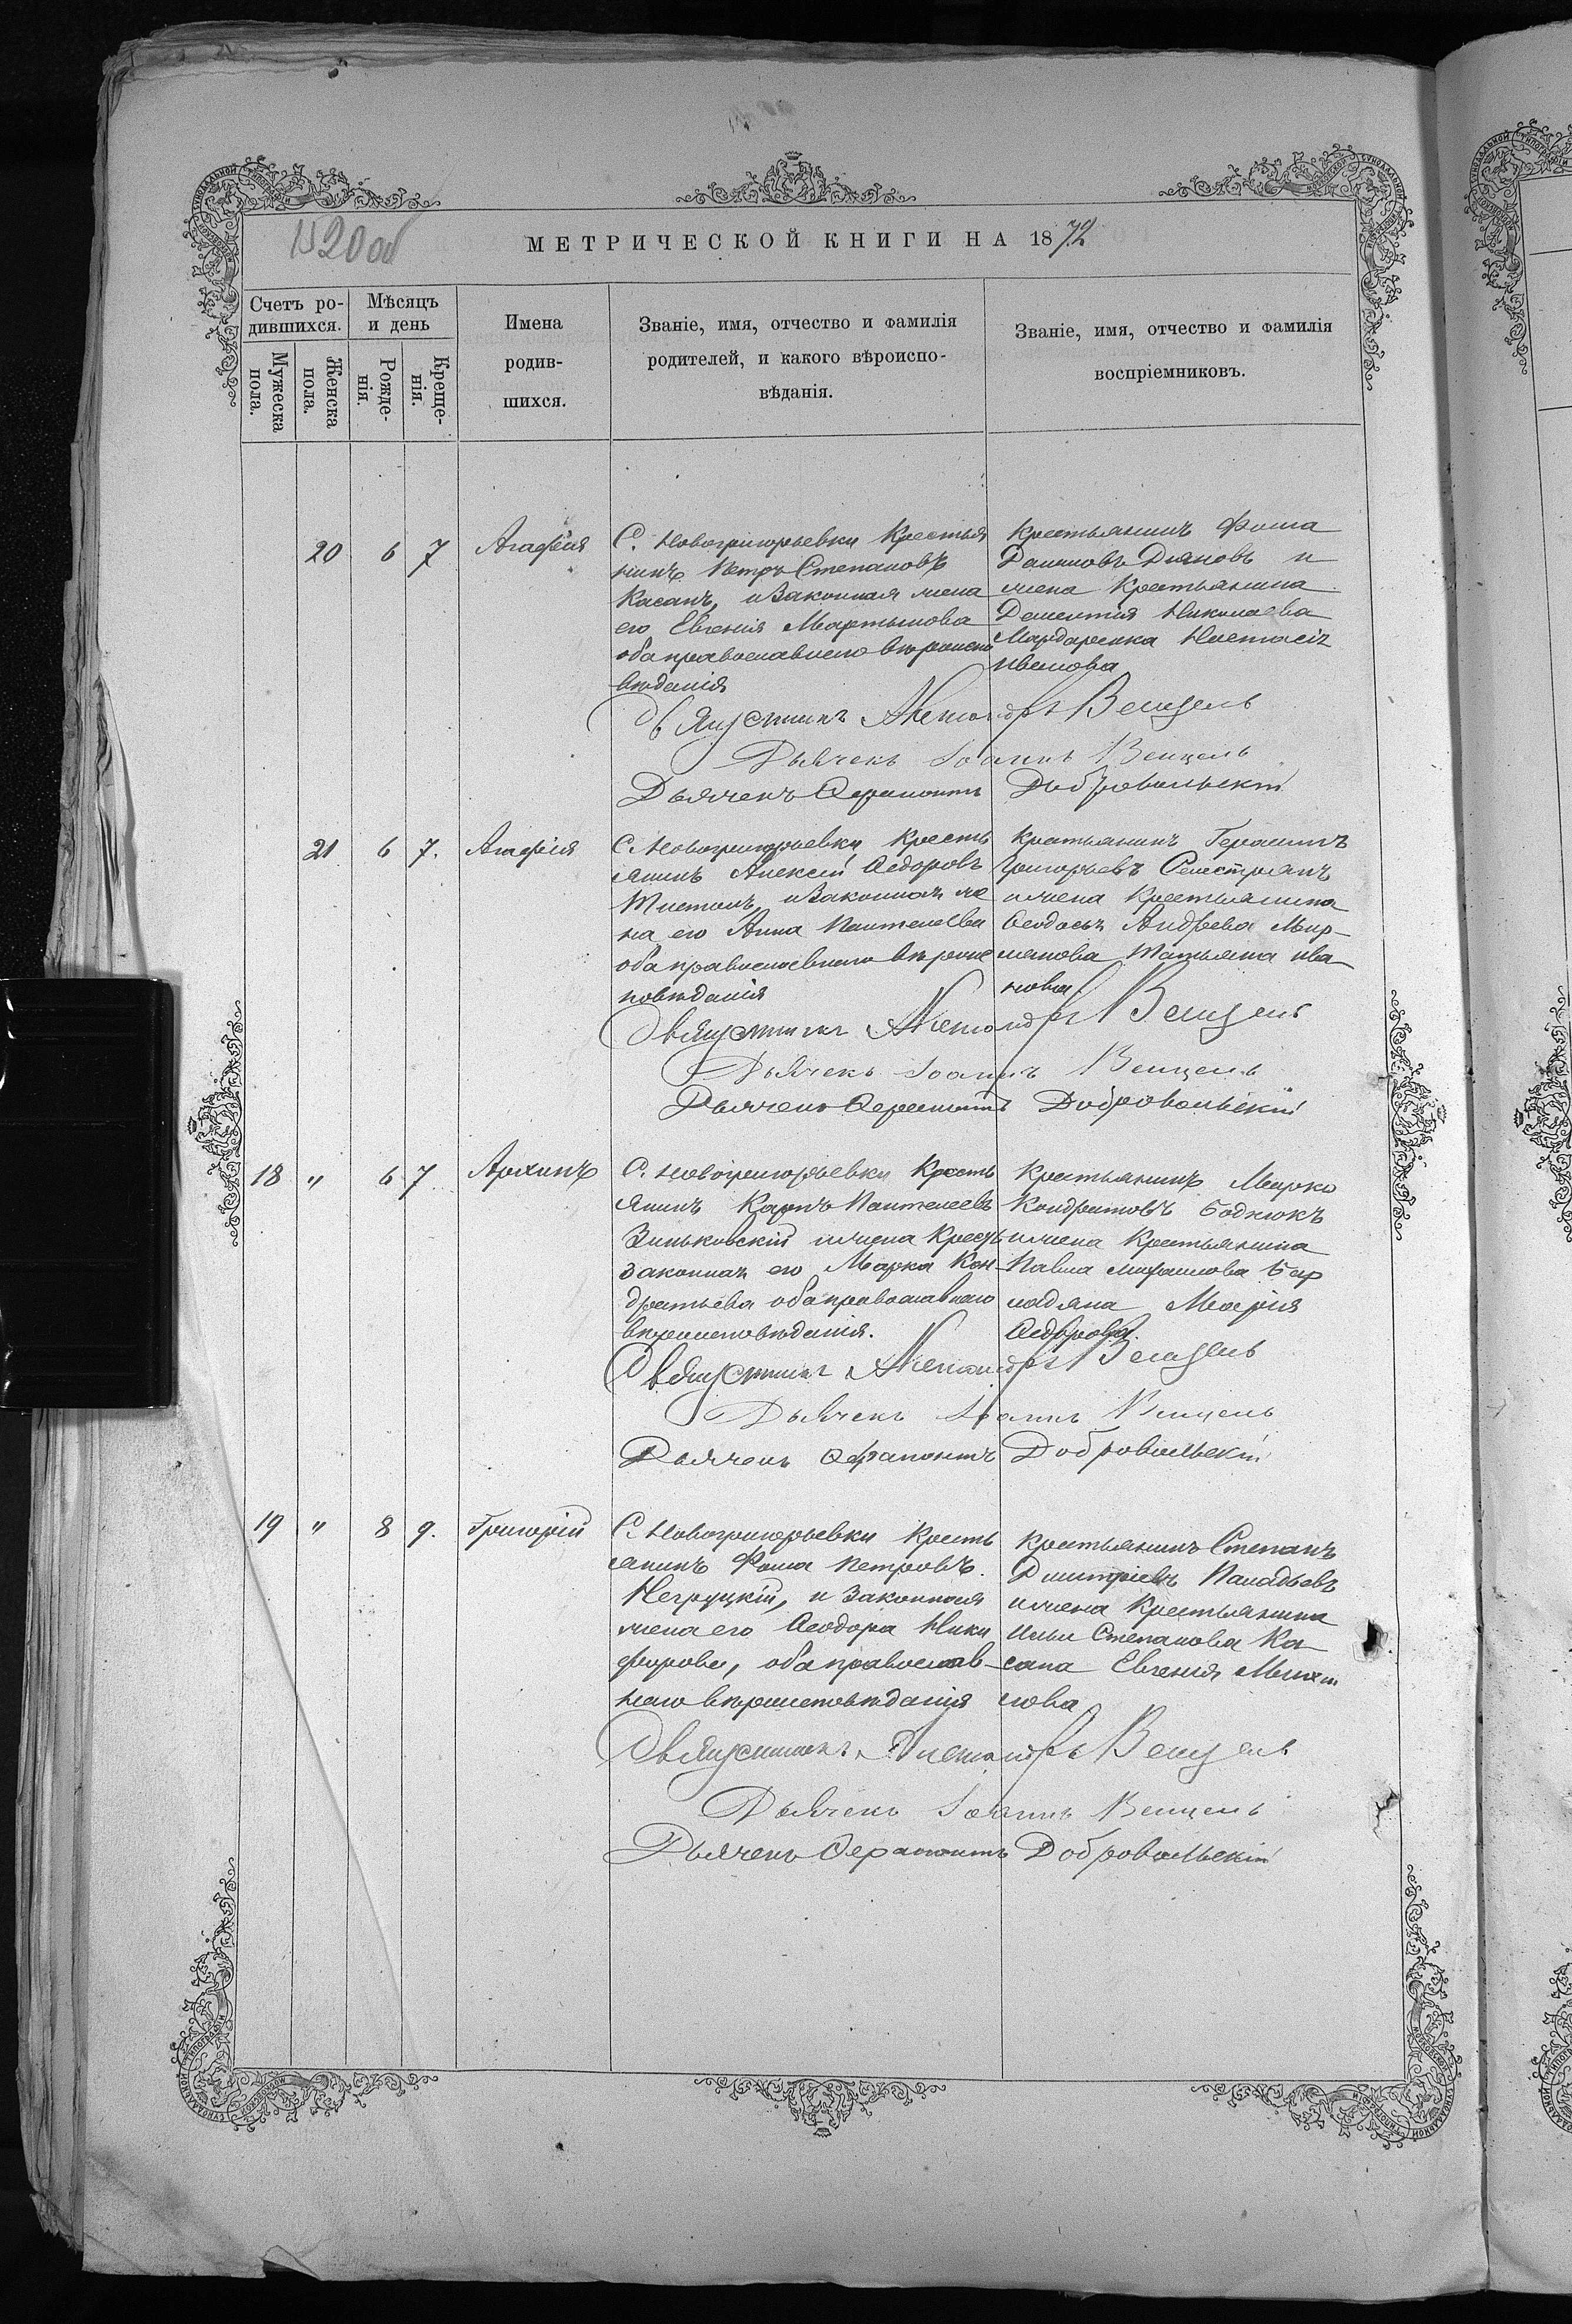 об
МЕТРИЧЕСКОЙ КНИГИ НА 1872
Счетъ ро-
дившихся.
Мужеска пола.
Женска пола.
Мѣсяцъ
и день
Рожде-
нія.
Креще-
нія.
Имена
родив-
шихся.
Званіе, имя, отчество и фамилія
родителей, и какого вѣроиспо-
вѣданія.
Званіе, имя, отчество и фамилія
воспріемниковъ.
20 6 7 Агафія
С. Новогригорьевки Крестья
нинъ Петръ Степановъ
Касапъ, и законная жена
его Евгенія Мартынова
оба православнаго вѣроиспо
вѣданія
Крестьянинъ Фома
Даниловъ Дяновъ и
жена Крестьянина
Дементія Николаева
Мардаренка Настасія
Иванова
Священникъ Александръ Венцель
Дьячекъ Іоаннъ Венцель
Дьячекъ Ѳерапонтъ Добровольскій
21 6 7. Агафія
С. Новогригорьевки Кресть
янинъ Алексій Ѳедоровъ
и законная же
на его Анна Пантелеева
оба православнаго вѣроис
повѣданія
Крестьянинъ Герасимъ
Григорьевъ
и жена Крестьянина
Ѳеодосія Андреева
Татьяна Ива
нова
Священникъ Александръ Венцель
Дьячекъ Іоаннъ Венцель
Дьячекъ Ѳерапонтъ Добровольскій
18 " 6 7 Архипъ
С. Новогригорьевки Кресть
янинъ Карпъ Пантелеевъ
Зиньковскій и жена Кресть
законная его Марфа Кон-
дратьева оба православнаго
вѣроисповѣданія.
Крестьянинъ Марко
Кондратовъ Боднюкъ
и жена Крестьянина
Павла Бар
ладяна Марія
Ѳедорова.
Священникъ Александръ Венцель
Дьячекъ Іоаннъ Венцель
Дьячекъ Ѳерапонтъ Добровольскій
19 " 8 9. Григорій
С. Новогригорьевки Кресть
янинъ Фома Петровъ.
Негруцкій, и законная
жена его Ѳеодора Ники
форова, оба православ-
наго вѣроисповѣданія
Крестьянинъ Степанъ
Димитріевъ Паладьевъ
и жена Крестьянина
Ильи Степанова Ка-
сапа Евгенія
Священникъ Александръ Венцель
Дьячекъ Іоаннъ Венцель
Дьячекъ Ѳерапонтъ Добровольскій